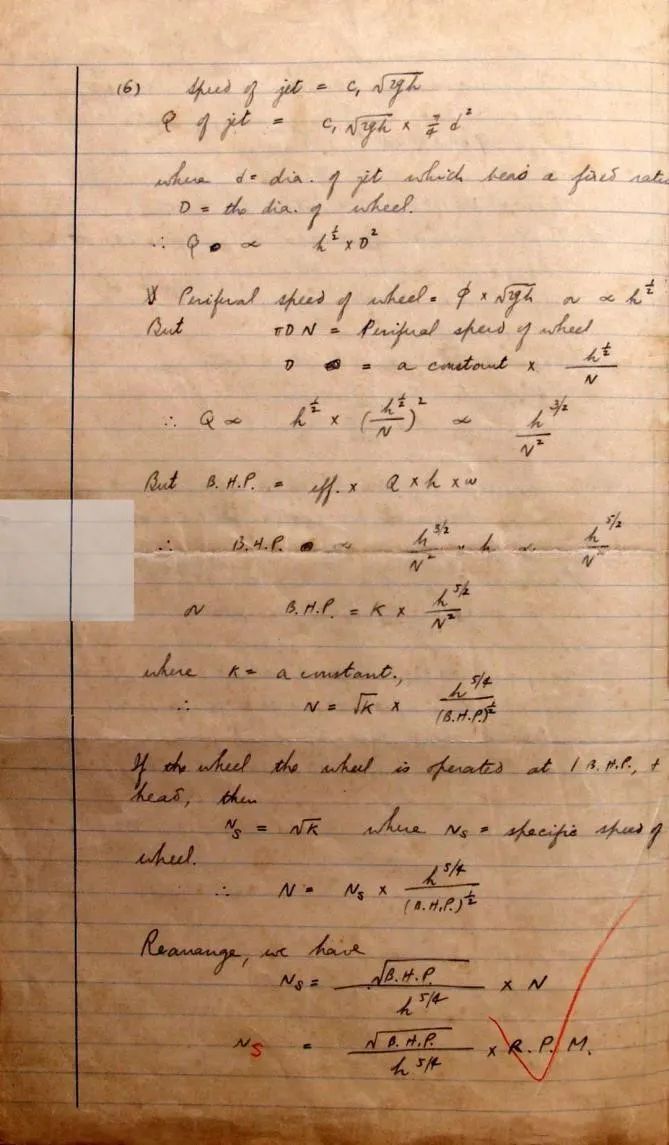 (6) Speed of jet = c, √2gh
Q of jet = c, √2gh × π/4 d²
where d = dia. of jet which bears a fixed ratio
D = the dia. of wheel.
∴ Q ∝ h^½ × D²
Periferal speed of wheel = φ × √2gh or ∝ h^½
But πDN = Periferal speed of wheel
D = a constant × h^½/N
∴ Q ∝ h^½ × (h^½/N)² ∝ h^3/2/N²
But B.H.P. = eff. × Q × h × w
∴ B.H.P. ∝ h^3/2/N² × h ∝ h^5/2/N²
or B.H.P. = K × h^5/2/N²
where K = a constant.,
∴ N = √K × h^5/4/(B.H.P.)^½
If the wheel the wheel is operated at 1 B.H.P., +
head, then
Ns = √K where Ns = specific speed of
wheel.
∴ N = Ns × h^5/4/(B.H.P.)^½
Rearange, we have
Ns = √B.H.P./h^5/4 × N
Ns = √B.H.P./h^5/4 × R.P.M.